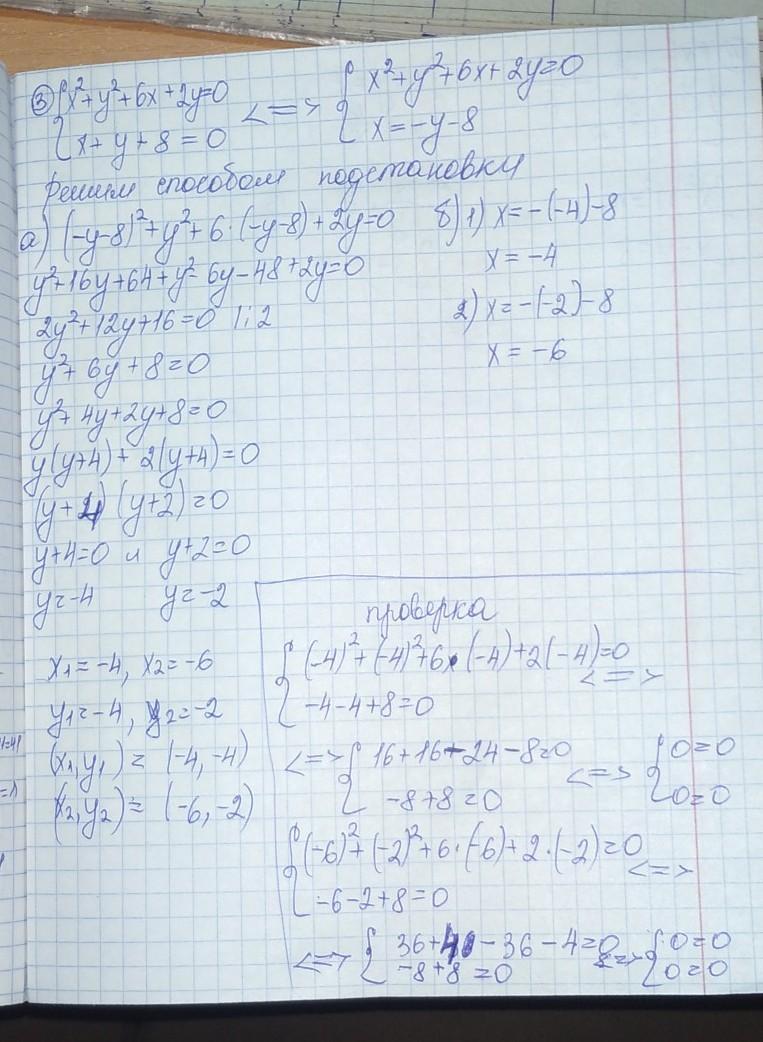 ③ { x²+y²+6x+2y=0 <=> { x²+y²+6x+2y=0
{ x+y+8=0 { x=-y-8
Решим способом подстановки
а) (-y-8)²+y²+6·(-y-8)+2y=0
y²+16y+64+y²-6y-48+2y=0
2y²+12y+16=0 |:2
y²+6y+8=0
y²+4y+2y+8=0
y(y+4)+2(y+4)=0
(y+4)(y+2)=0
y+4=0 и y+2=0
y=-4 y=-2
x₁=-4, x₂=-6
y₁=-4, y₂=-2
(x₁,y₁)=(-4,-4)
(x₂,y₂)=(-6,-2)
б) 1) x=-(-4)-8
x=-4
2) x=-(-2)-8
x=-6
проверка
{ (-4)²+(-4)²+6·(-4)+2(-4)=0 <=>
{ -4-4+8=0
<=> { 16+16-24-8=0 <=> { 0=0
{ -8+8=0 { 0=0
{ (-6)²+(-2)²+6·(-6)+2·(-2)=0 <=>
{ -6-2+8=0
<=> { 36+4-36-4=0 <=> { 0=0
{ -8+8=0 { 0=0